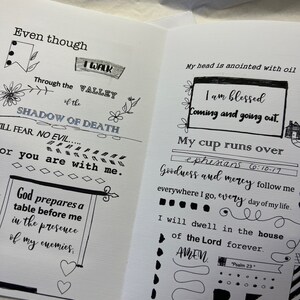 Even though
I WALK
Through the VALLEY
of the
SHADOW OF DEATH
ILL FEAR NO EVIL....
or you are with me.
God prepares a
table before me
in the presence
of my enemies.
My head is anointed with oil
I am blessed
Coming and going out.
My cup runs over
ephesians 6:10-17
Goodness and mercy follow me
everywhere I go, every day of my life.
I will dwell in the house
of the Lord forever.
AMEN.
"Psalm 23"